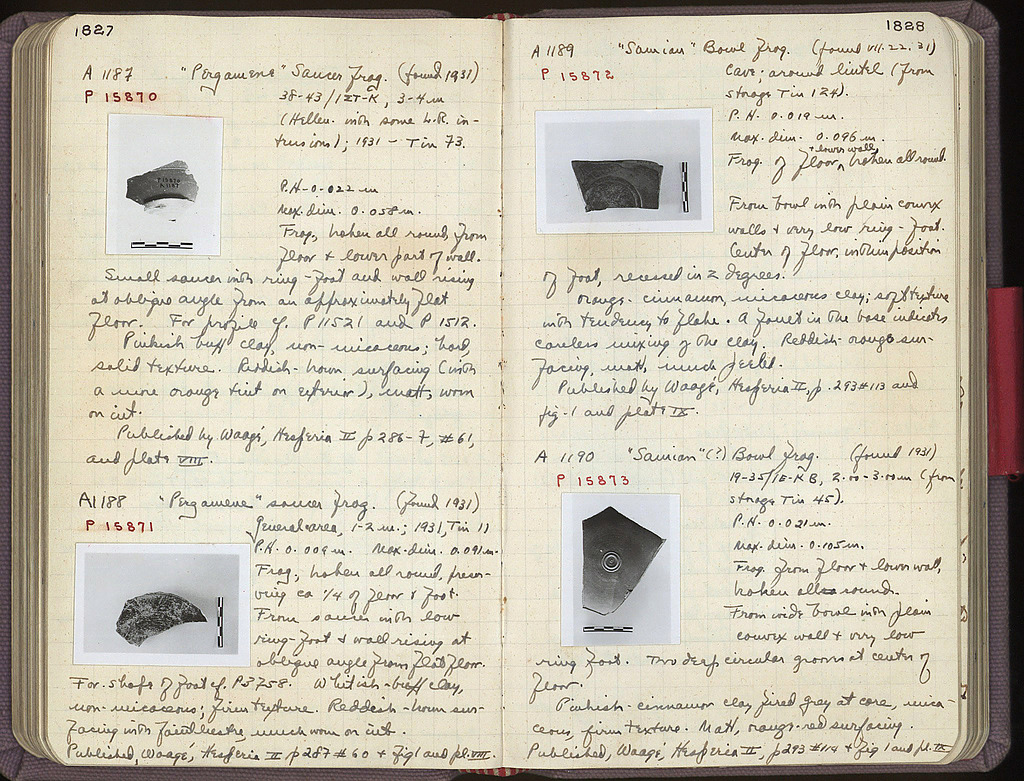 1827
A 1187 "Pergamene" Saucer frag. (found 1931)
P 15870
38-43/IET-K, 3-4 m
(Hellen. with some L.R. in-
trusions); 1931 - Tin 73.
P15870
A1187
P.H. 0.022 m
Max. dim. 0.058 m.
Frag, broken all round, from
floor + lower part of wall.
Small saucer with ring-foot and wall rising
at oblique angle from an approximately flat
floor. For profile cf. P 11521 and P 1512.
Pinkish buff clay, non-micaceous; hard,
solid texture. Reddish-brown surfacing (with
a more orange tint on exterior), matt, worn
on ext.
Published by Waagé, Hesperia II p 286-7, #61,
and plate VIII.
A1188 "Pergamene" saucer frag. (found 1931)
P 15871
General area, 1-2 m.; 1931, Tin 11
P.H. 0.009 m. Max. dim. 0.091 m.
Frag, broken all round, preser-
ving ca 1/4 of floor + foot.
From saucer with low
ring-foot + wall rising at
oblique angle from flat floor.
For shape of foot cf. P3758. Whitish-buff clay,
non-micaceous; firm texture. Reddish-brown sur-
facing with faint lustre, much worn on ext.
Published, Waagé, Hesperia II p287 #60 + fig 1 and pl. VIII.
1828
A 1189 "Samian" Bowl frag. (found VII.22.31)
P 15872
Cave; around lintel (from
storage Tin 124).
P.H. 0.019 m.
Max. dim. 0.096 m.
Frag. of floor + lower wall, broken all round.
From bowl with plain convex
walls + very low ring-foot.
Center of floor, within position
of foot, recessed in 2 degrees.
Orange-cinnamon, micaceous clay; soft texture
with tendency to flake. A in the base indicates
careless mixing of the clay. Reddish-orange sur-
facing, matt, much peeled.
Published by Waagé, Hesperia II, p. 293 #113 and
fig-1 and plate IX.
A 1190 "Samian" (?) Bowl frag. (found 1931)
P 15873
19-35/IE-KB, 2.00-3.00 m (from
storage Tin 45).
P.H. 0.021 m.
Max. dim. 0.105 m.
Frag. from floor + lower wall,
broken all round.
From wide bowl with plain
convex wall + very low
ring foot. Two deep circular grooves at center of
floor.
Pinkish-cinnamon clay fired grey at core, mica-
ceous, firm texture. Matt, orange-red surfacing.
Published, Waagé, Hesperia II, p293 #114 + fig 1 and pl. IX